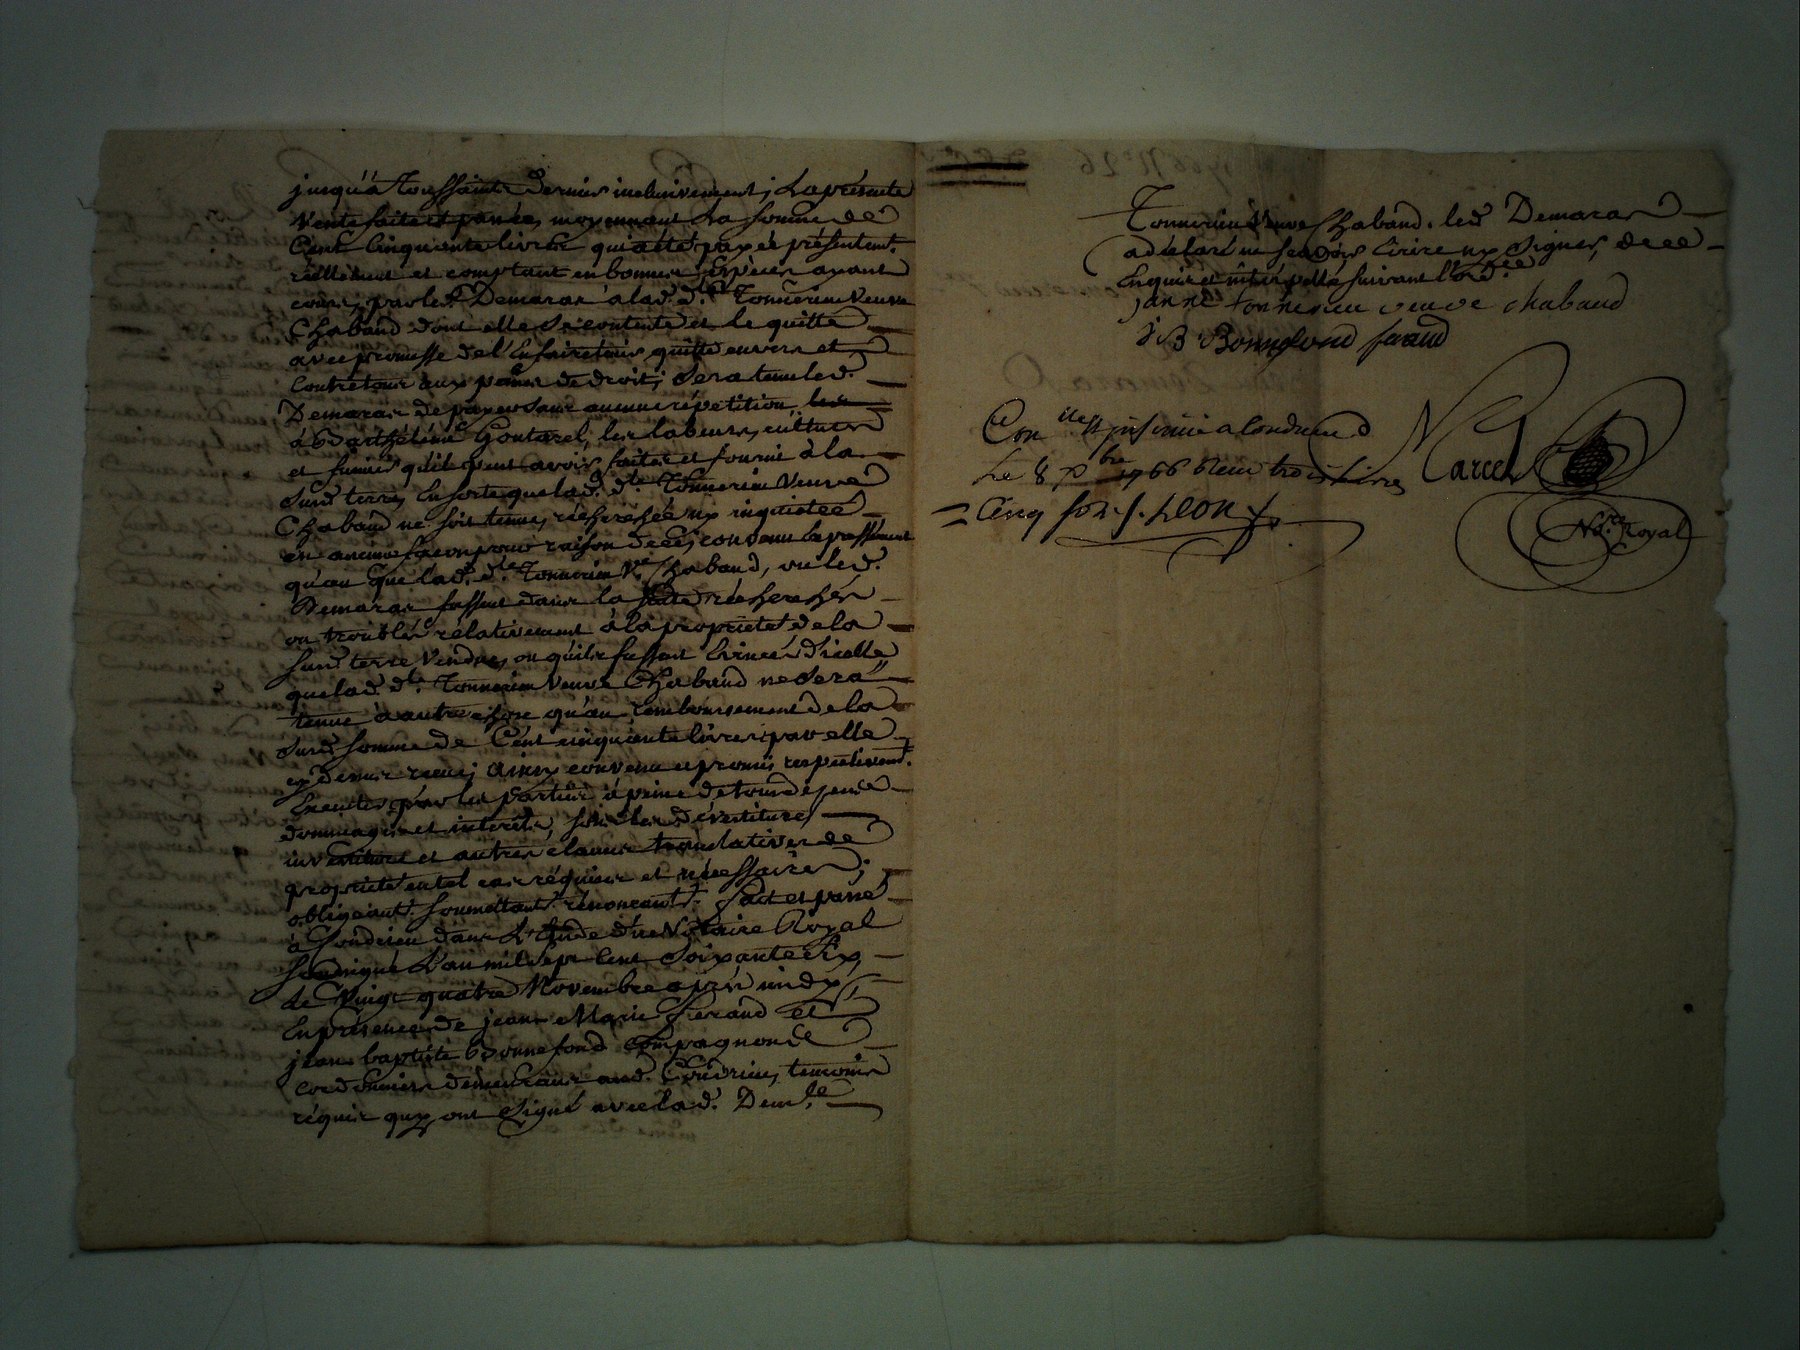 jusqu'á Toussaints dernier inclusivement; La présente
vente faite et passée, moyennant La somme de
Cent Cinquante livres qui a été payée présentemt.
réellement et comptant en bonnes Espèces ayant
cours, par led. Demaras à lad. dlle. Tonnerieu veuve
Chabaud dont elle se contente et le quitte
avec promesse de l'En faire tenir quitte envers et
contre tous aux peines de droit; Sera tenu led.
Demaras de payer sans aucune répétition
à Barthélémé Gontarel, les labeurs, cultures
et fumier qu'il peut avoir faites et fourni à la
susd. terre, En sorte que lad. dlle. Tonnerieu Veuve
Chabaud ne soit tenue, récherchée ny inquietée
en aucune façon pour raison de ce; convenu Expressément
qu'au cas que lad. dlle. Tonnerieu Ve. Chabaud, ou led.
Demaras fussent dans la suite récherchés
ou troublés rélativement à la proprieté de la
susd. terre Vendue, ou qu'ils fussent Evincés d'icelle
que lad. dlle. Tonnerieu Veuve Chabaud ne Sera
tenue à autre chose qu'au remboursement de la
susd. somme de Cent cinquante livres par elle
cy dessus recue; Ainsy convenu et promis respectivemt.
Executer par les parties à peine de tous dépens
dommages et interets, sous les dévestitures
investitures et autres clauses translatives de
proprieté en tel cas réquises et nécessaires;
obligeants. soumettants. rénonceants. Fait et passé
à Condrieu dans L'Etude du Notaire Royal
soussigné L'an mil sept Cent Soixante Six,
Le Vingt quatre Novembre après midy,
En présence de jean Marie Feraud et
jean baptiste Bonnefond Compagnons
cordonniers démeurants aud. Condrieu, temoins
réquis quy ont Signé avec lad. Demlle.
Tonnerieu Veuve Chabaud. led. Demaras
a déclaré ne sçavoir Ecrire ny Signer, de ce
Enquis et interpellé suivant l'ordce.
janne tonnerieu veuve chabaud
J B Bonnefond feraud
Con insinué a Condrieu
Le 8 xbre 1766 Reçu trois Livres
Cinq sols. J. LEON
Marcel
Nore. Royal